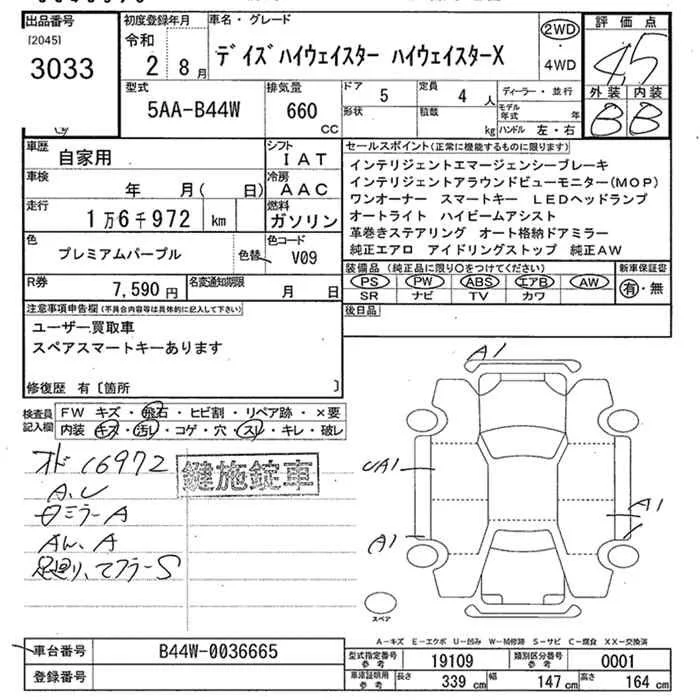 出品番号 初度登録年月 車名・グレード 2WD 評価点
[2045] 令和
3033 2 8月 デイズハイウェイスター ハイウェイスターX ・ 4WD 4.5
型式 排気量 ドア 5 定員 4人 ディーラー・並行 外装 内装
5AA-B44W 660 CC 形状 積載 kg モデル年式 年 B B
ハンドル 左・右
車歴 自家用 シフト IAT セールスポイント(正常に機能するものに限ります)
車検 年 月( 日) 冷房 AAC インテリジェントエマージェンシーブレーキ
インテリジェントアラウンドビューモニター(MOP)
走行 1万6千972 km 燃料 ガソリン ワンオーナー スマートキー LEDヘッドランプ
オートライト ハイビームアシスト
色 プレミアムパープル 色替 色コード V09 革巻きステアリング オート格納ドアミラー
純正エアロ アイドリングストップ 純正AW
R券 7,590円 名変通知期限 月 日 装備品(純正品に限り○をつけてください) 新車保証書
PS PW ABS エアB AW 有・無
SR ナビ TV カワ
注意事項申告欄(不具合内容等は具体的に記入して下さい) 後日品
ユーザー買取車
スペアスマートキーあります
修復歴 有〔箇所 〕
検査員記入欄 FW キズ・飛石・ヒビ割・リペア跡・×要
内装 キズ・汚レ・コゲ・穴・スレ・キレ・破レ
オド 16972 鍵施錠車
A、U
ミラーA
A
足廻り、マフラーS
A1
UA1
A1
A1
スペア
A-キズ E-エクボ U-凹み W-補修跡 S-サビ C-腐食 XX-交換済
車台番号 B44W-0036665 型式指定番号 参考 19109 類別区分番号 参考 0001
登録番号 車庫証明用 参考 長さ 339 cm 幅 147 cm 高さ 164 cm